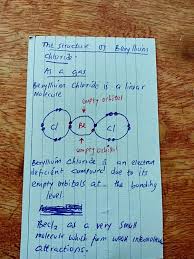 The structure of Beryllium
Chloride:
As a gas
Beryllium Chloride is a linear
Molecule
empty orbital
Cl Be Cl
empty orbital
Beryllium chloride is an electron
deficient compound due to its
empty orbitals at the bonding
level.
BeCl2 as a very small
molecule which form weak intermolecular
attractions.